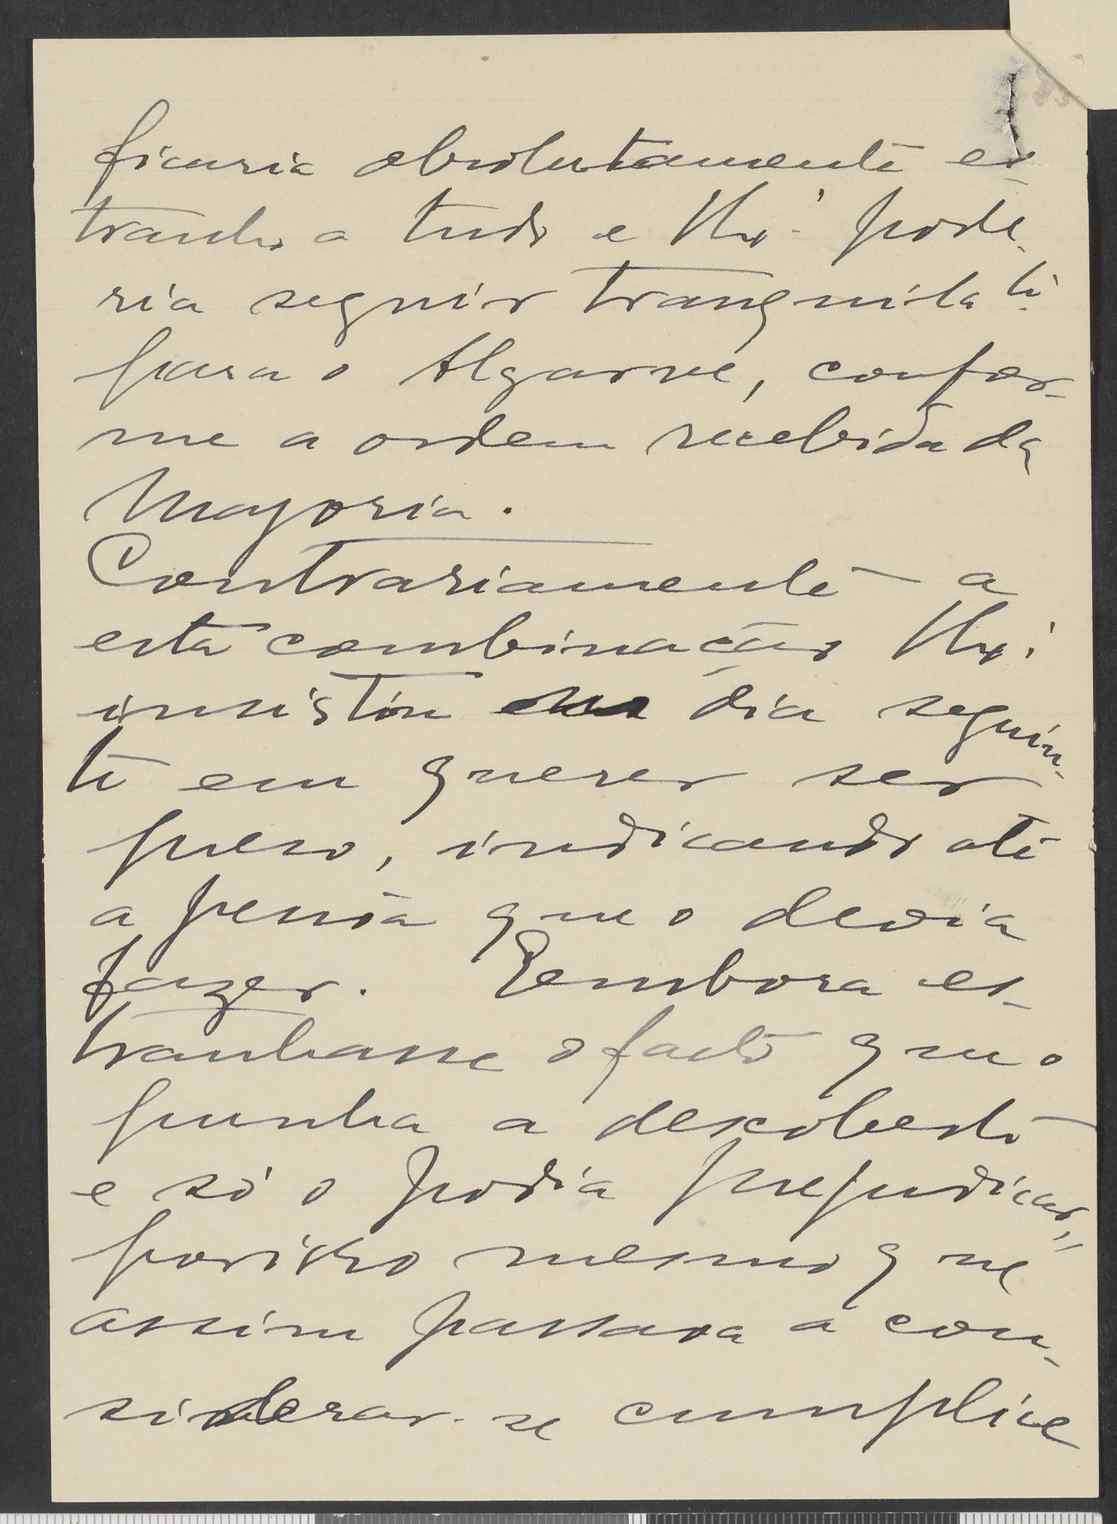 ficaria absolutamente es
tranho a tudo e V. Ex.ª pode-
ria seguir tranquila te
para o Algarve, confor-
me a ordem recebida da
Majoria.
Contrariamente a
esta combinação V. Ex.ª
insistiu no dia seguin-
te em querer ser
preso, indicando até
a pessôa que o devia
fazer. Embora es-
tranhasse o facto que o
punha a descoberto
e só o podia prejudicar,
porisso mesmo que
assim passava a con-
siderar-se cumplice